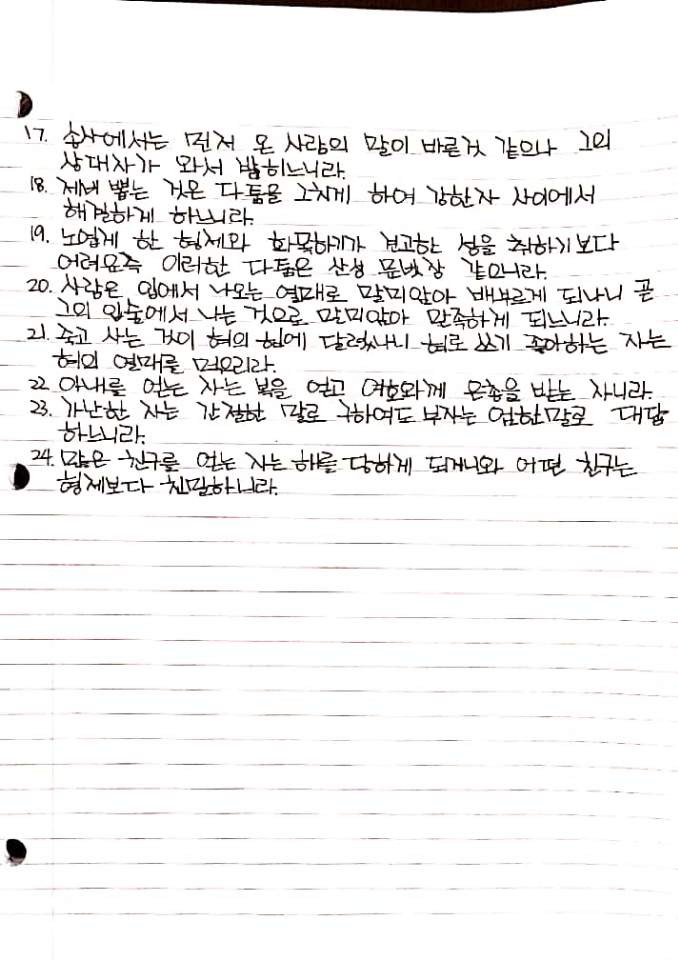 17. 송사에서는 먼저 온 사람의 말이 바른것 같으나 그의
상대자가 와서 밝히느니라.
18. 제비 뽑는 것은 다툼을 그치게 하여 강한자 사이에서
해결하게 하느니라.
19. 노엽게 한 형제와 화목하기가 견고한 성을 취하기보다
어려운즉 이러한 다툼은 산성 문빗장 같으니라.
20. 사람은 입에서 나오는 열매로 말미암아 배부르게 되나니 곧
그의 입술에서 나는 것으로 말미암아 만족하게 되느니라.
21. 죽고 사는 것이 혀의 힘에 달렸나니 혀로 쓰기 좋아하는 자는
혀의 열매를 먹으리라.
22. 아내를 얻는 자는 복을 얻고 여호와께 은총을 받는 자니라.
23. 가난한 자는 간절한 말로 구하여도 부자는 엄한말로 대답
하느니라.
24. 많은 친구를 얻는 자는 해를 당하게 되거니와 어떤 친구는
형제보다 친밀하니라.